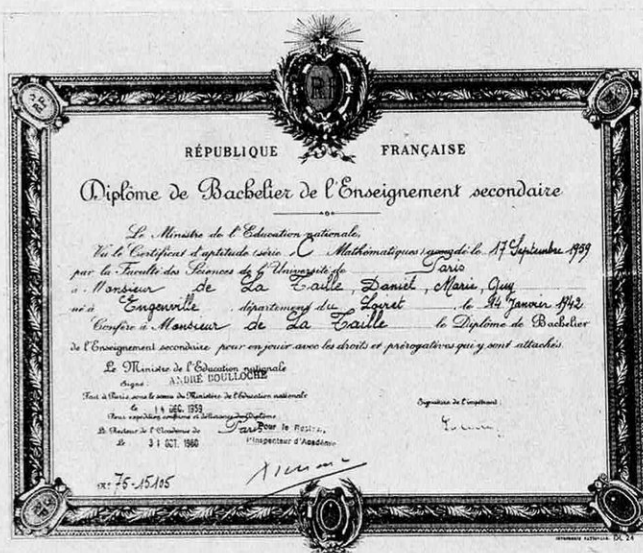 RÉPUBLIQUE FRANÇAISE
Diplôme de Bachelier de l'Enseignement secondaire
Le Ministre de l'Education nationale,
Vu le Certificat d'aptitude (série C Mathématiques) accordé le 17 Septembre 1959
par la Faculté des Sciences de l'Université de Paris
à Monsieur de La Taille, Daniel, Marie, Guy
né à Engenville, département du Loiret, le 14 Janvier 1942
Confère à Monsieur de La Taille le Diplôme de Bachelier
de l'Enseignement secondaire pour en jouir avec les droits et prérogatives qui y sont attachés.
Le Ministre de l'Education nationale
Signé : ANDRÉ BOULLOCHE
Fait à Paris, sous le sceau du Ministère de l'Education nationale
le 14 DÉC. 1959
Pour expédition conforme et délivrance du diplôme
Le Recteur de l'Académie de Paris
Pour le Recteur,
l'Inspecteur d'Académie
Le 31 OCT. 1960
Signature de l'impétrant :
N° 75-15105
IMPRIMERIE NATIONALE.